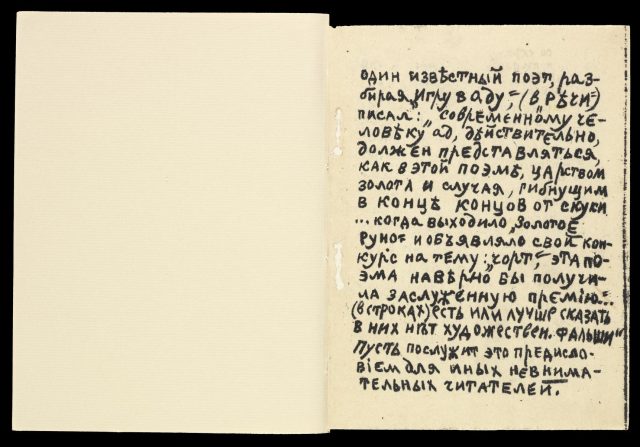 один извѣстный поэт, раз-
бирая „Игру в аду“, (в „РѢЧИ“)
писал: „современному че-
ловѣку ад, дѣйствительно,
должен представляться,
как в этой поэмѣ, царством
золота и случая, гибнущим
в концѣ концов от скуки
... когда выходило „Золотое
Руно“ и объявляло свой кон-
курс на тему: „чорт“, эта по-
эма навѣрно бы получи-
ла заслуженную премію“...
(в строках) есть или лучше сказать
в них нѣт художествен. фальши“
Пусть послужит это предисло-
віем для иных невнима-
тельных читателей.